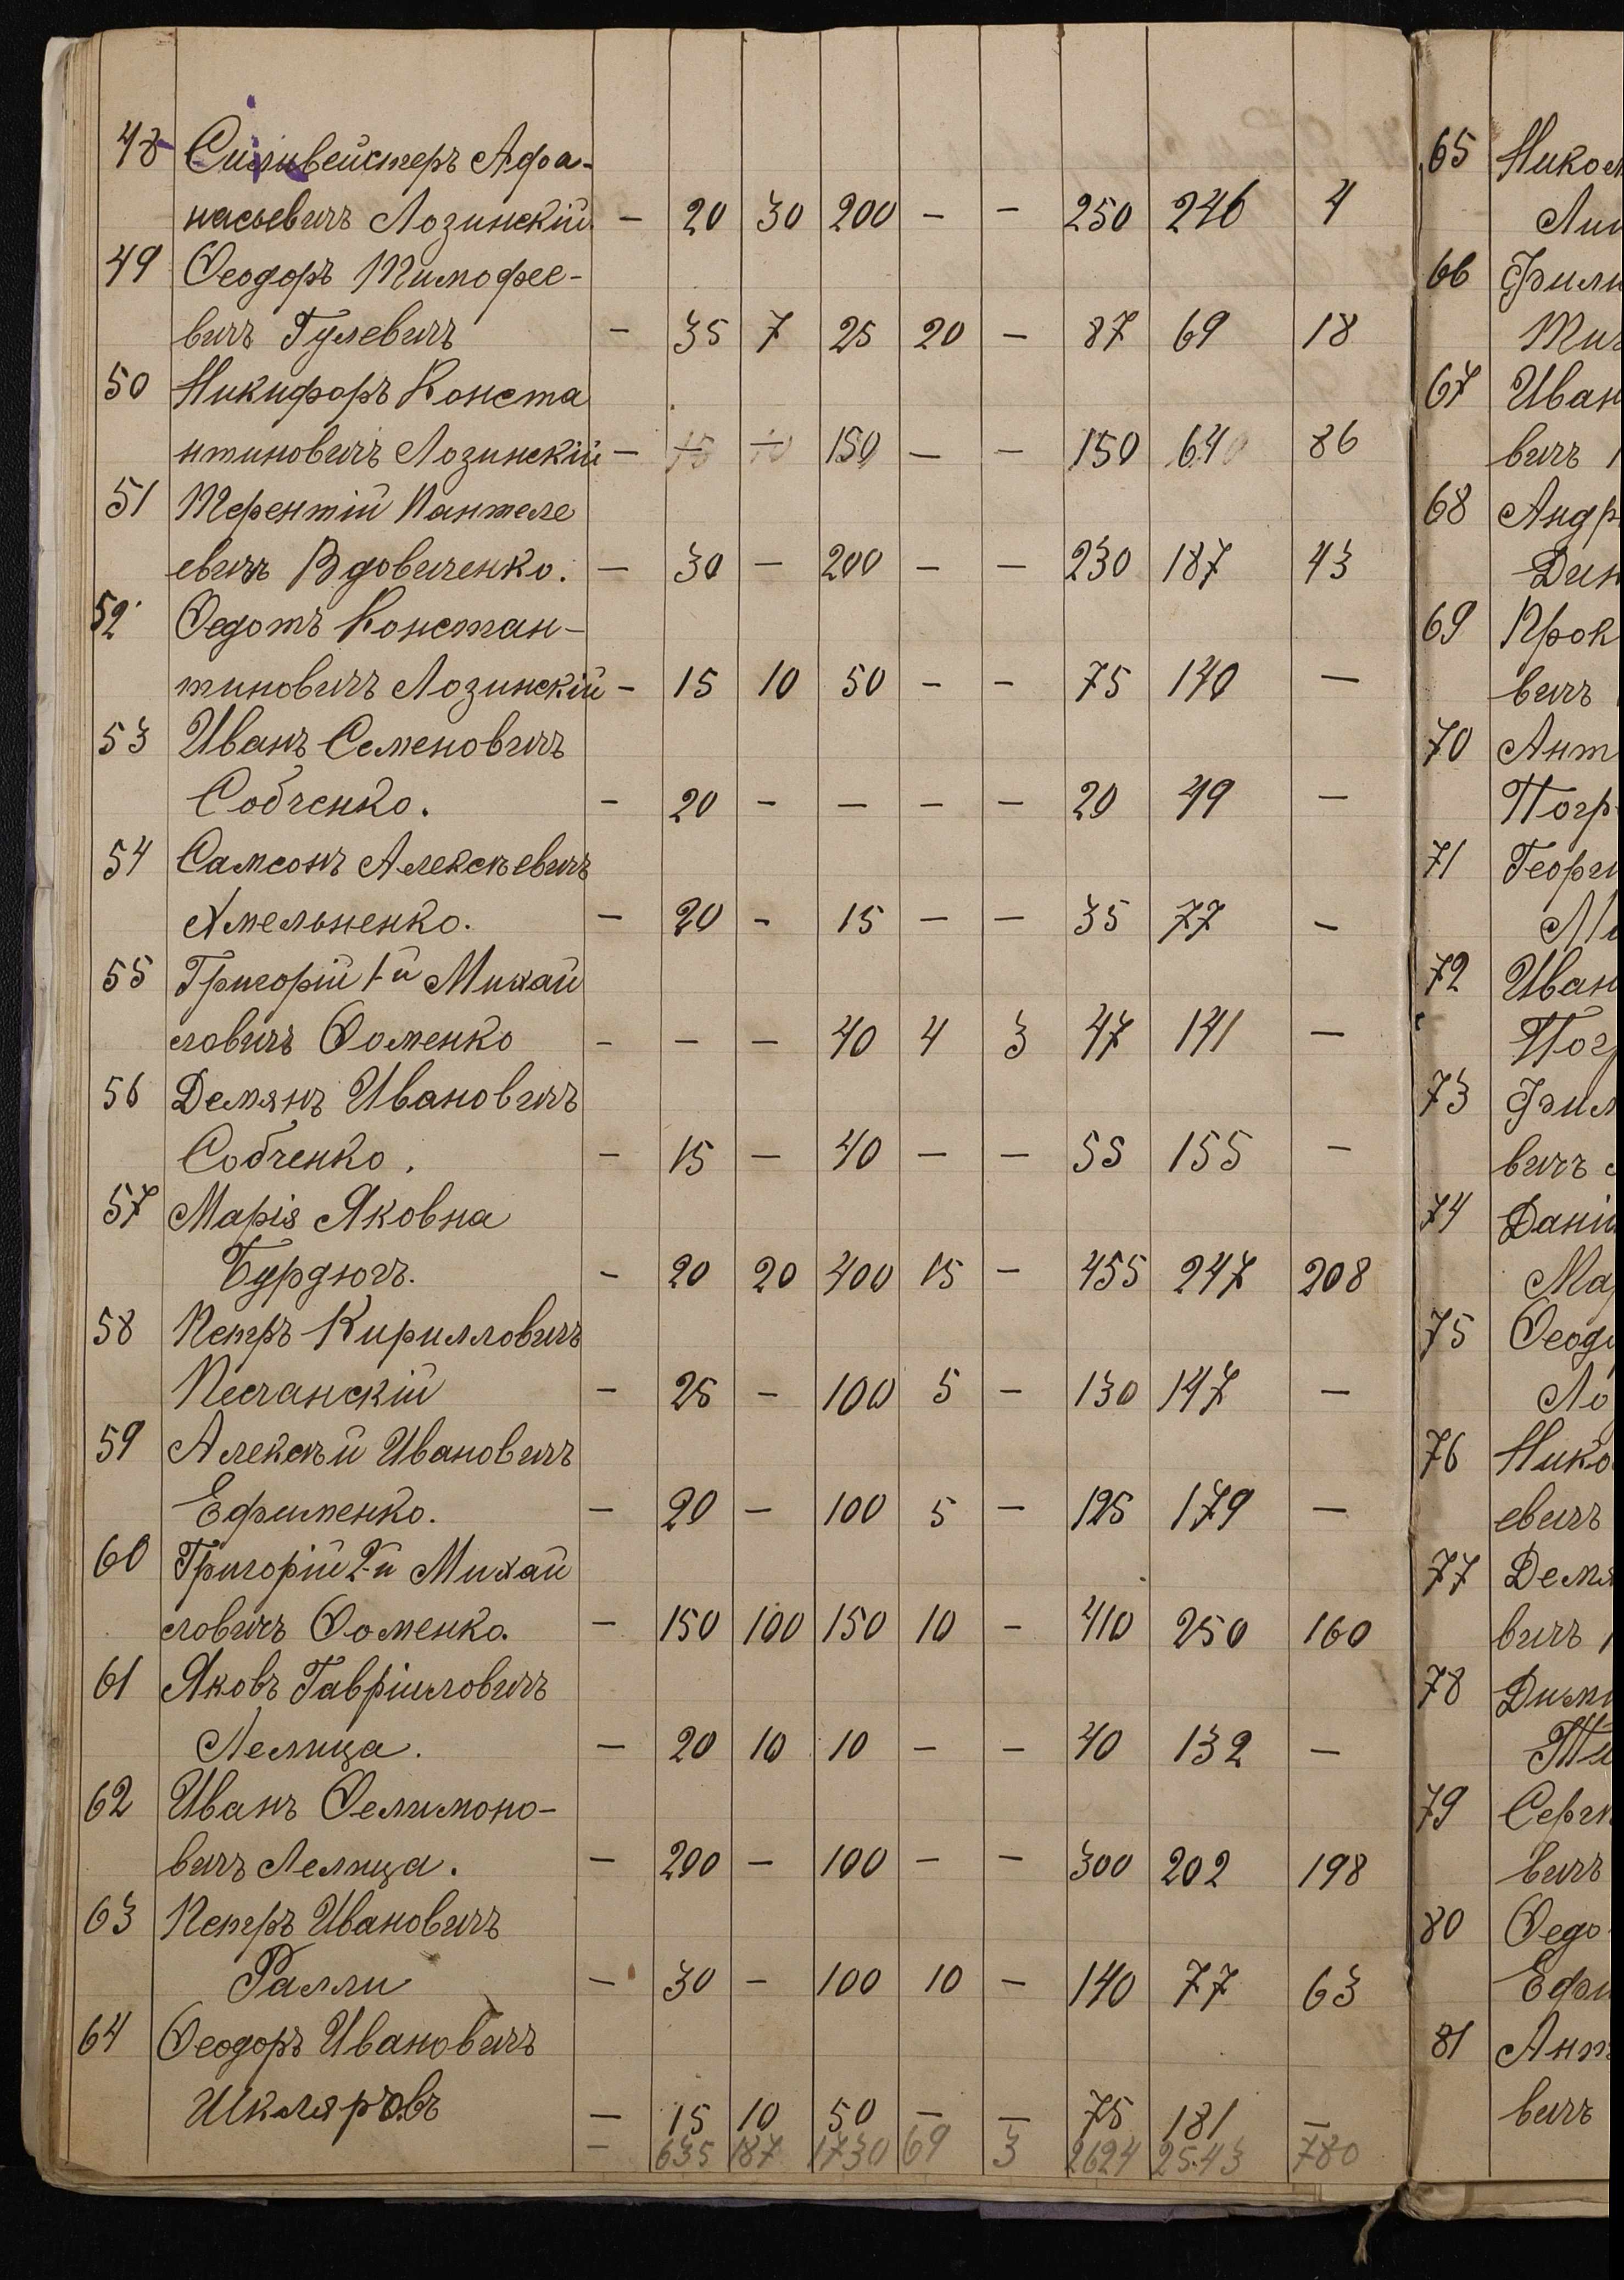 48 Сильвейстеръ Афа-
насьевичъ Лозинскій. — 20 30 200 — — 250 246 4
49 Ѳеодоръ Тимофее-
вичъ Гулевичъ — 35 7 25 20 — 87 69 18
50 Никифоръ Конста
нтиновичъ Лозинскій — 15 10 150 — — 150 640 86
51 Терентій Пантеле
евичъ Вдовиченко. — 30 — 200 — — 230 187 43
52 Ѳедотъ Констан-
тиновичъ Лозинскій — 15 10 50 — — 75 140 —
53 Иванъ Семеновичъ
Собченко. — 20 — — — — 20 49 —
54 Самсонъ Алексѣевичъ
Хмельненко. — 20 — 15 — — 35 77 —
55 Григорій 1-й Михай
ловичъ Ѳоменко — — — 40 4 3 47 141 —
56 Демянъ Ивановичъ
Собченко. — 15 — 40 — — 55 155 —
57 Марія Яковна
Бурдюгъ. — 20 20 400 15 — 455 247 208
58 Петръ Кирилловичъ
Песчанскій — 25 — 100 5 — 130 147 —
59 Алексѣй Ивановичъ
Ефименко. — 20 — 100 5 — 125 179 —
60 Григорій 2-й Михай
ловичъ Ѳоменко. — 150 100 150 10 — 410 250 160
61 Яковъ Гавріиловичъ
Лелица. — 20 10 10 — — 40 132 —
62 Иванъ Ѳелимоно-
вичъ Лелица. — 200 — 100 — — 300 202 198
63 Петръ Ивановичъ
Ралли — 30 — 100 10 — 140 77 63
64 Ѳеодоръ Ивановичъ
Шкляровъ — 15 10 50 — — 75 181 —
— 635 187 1730 69 3 2624 2543 780
65 Никол
Ли
66 Фили
Ти
67 Иван
вичъ
68 Андр
Дин
69 Прок
вичъ
70 Ант
Погр
71 Георги
М
72 Иван
Пог
73 Фил
вичъ
74 Дані
Ма
75 Ѳеод
Ло
76 Нико
евичъ
77 Демя
вичъ
78 Дим
Ти
79 Серг
вичъ
80 Ѳедо
Ефи
81 Ант
вичъ